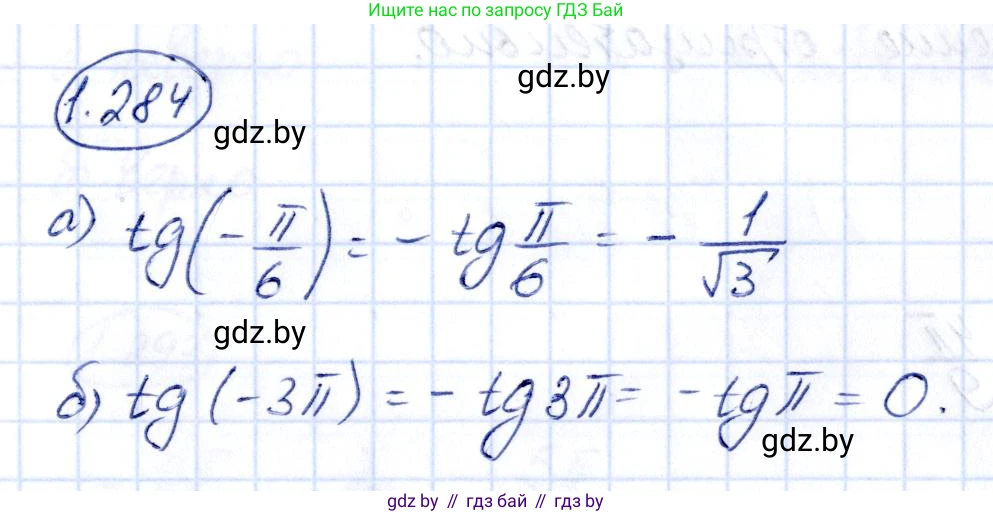 Ищите нас по запросу ГДЗ Бай
gdz.by
1.284
gdz.by
а) tg(-π/6) = - tg π/6 = - 1/√3
gdz.by
б) tg (-3π) = - tg 3π = - tg π = 0.
gdz.by
gdz.by // гдз бай // гдз by